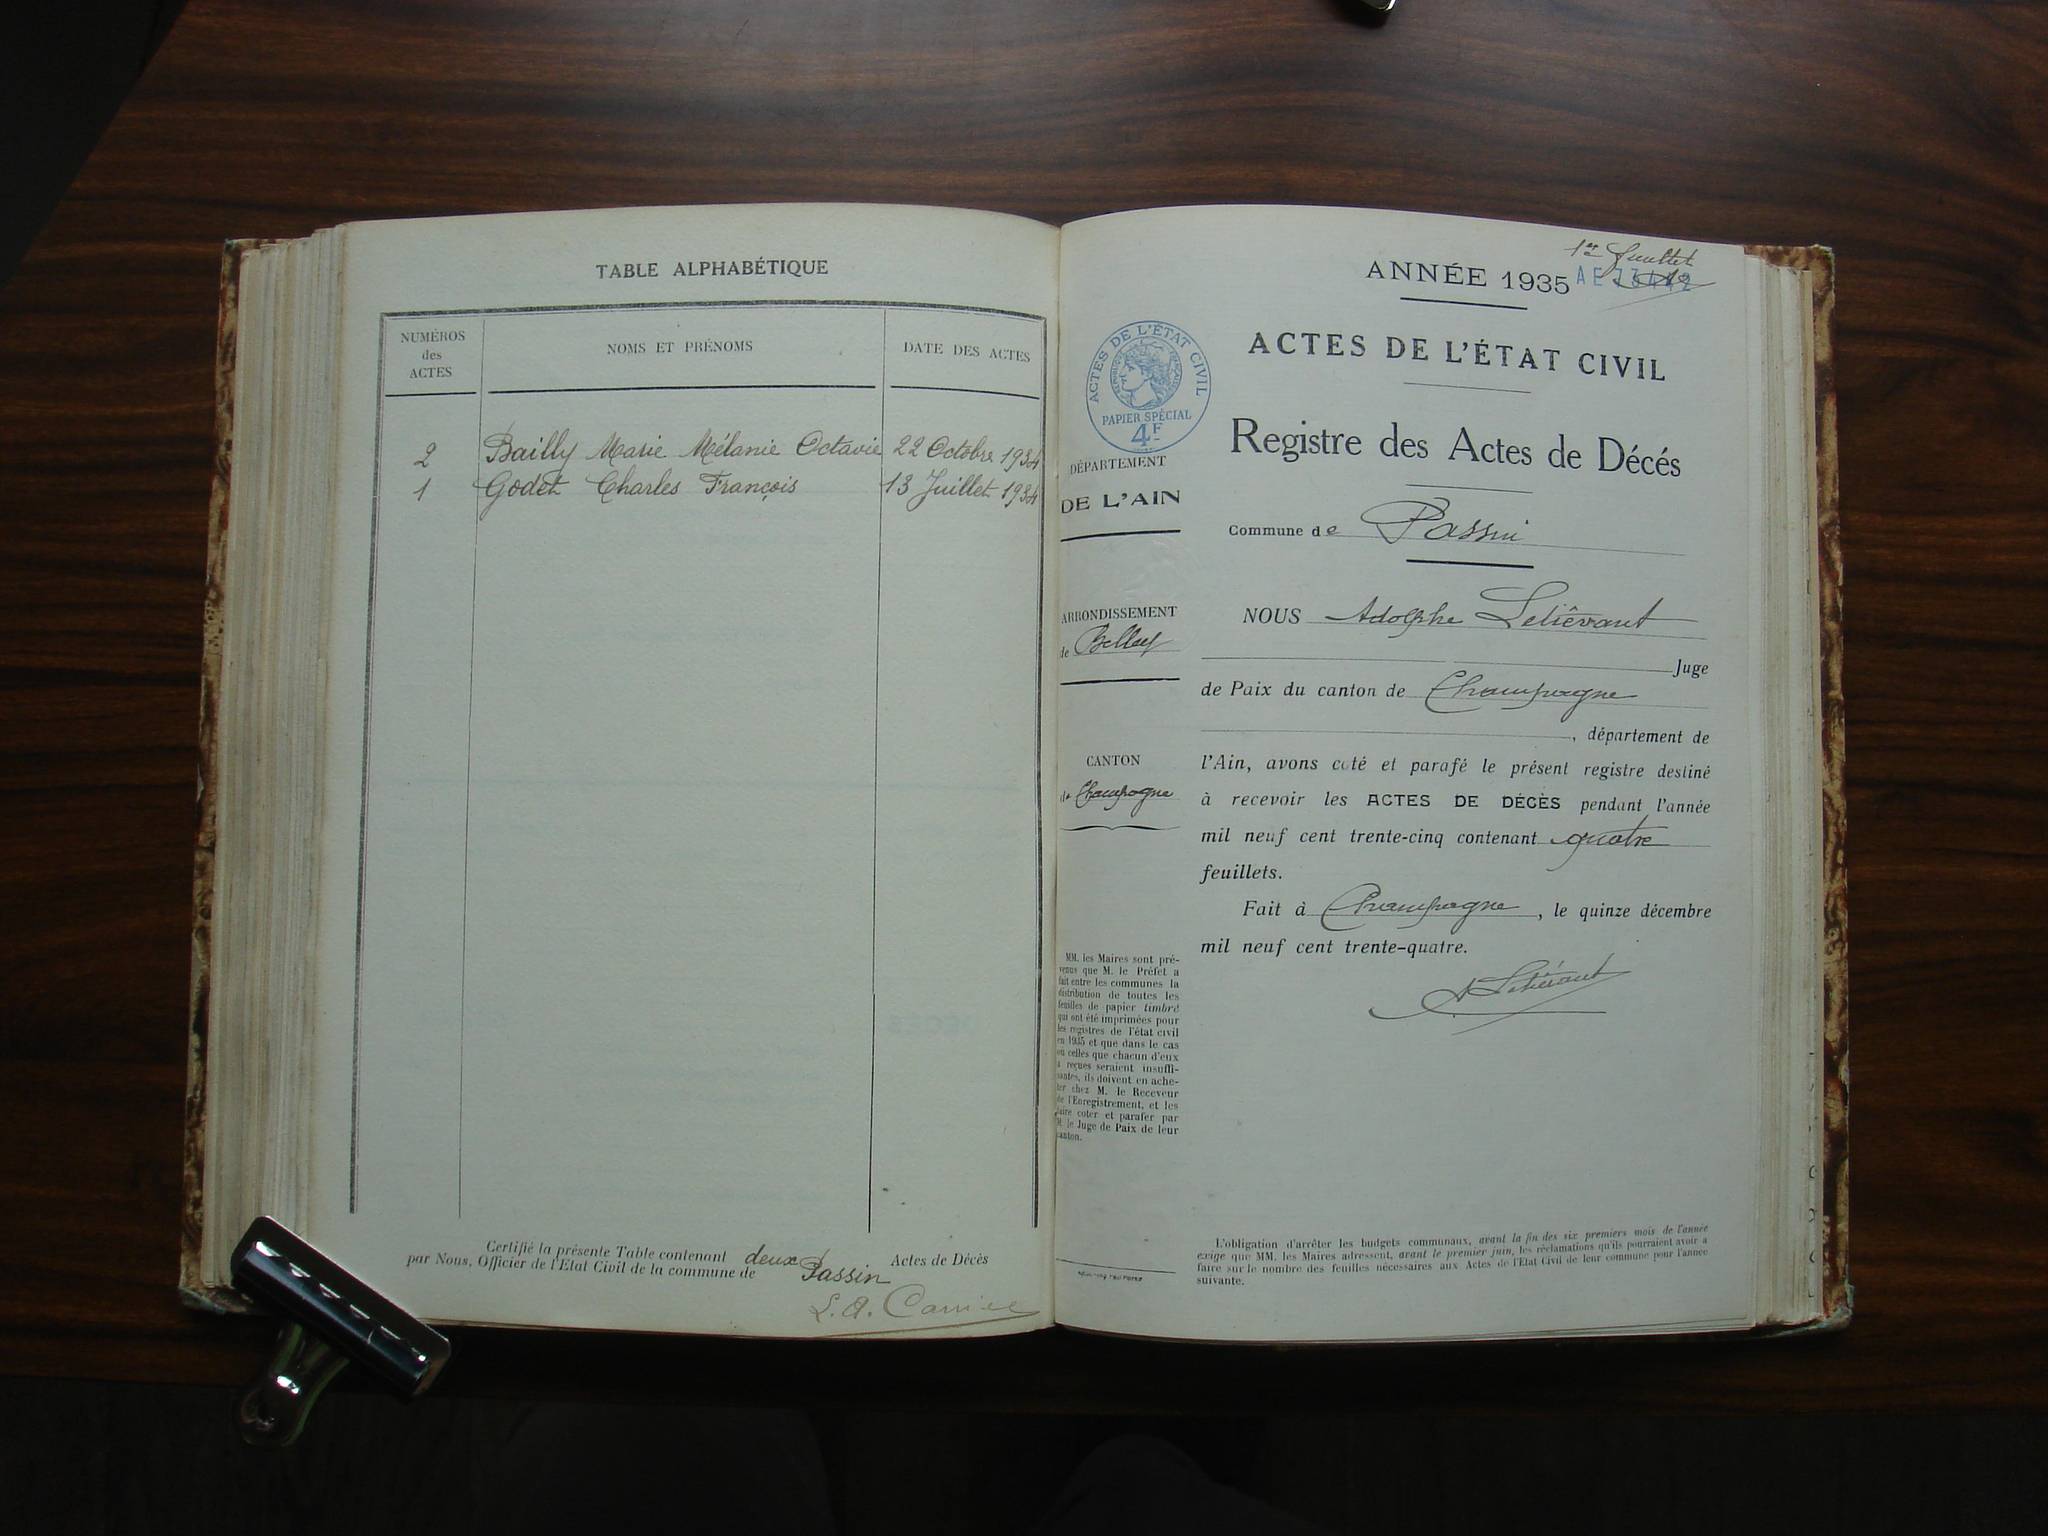 TABLE ALPHABÉTIQUE
NUMÉROS
des
ACTES
NOMS ET PRÉNOMS
DATE DES ACTES
2 Bailly Marie Mélanie Octavie 22 Octobre 1934
1 Godet Charles François 13 Juillet 1934
Certifié la présente Table contenant deux Actes de Décès
par Nous, Officier de l'Etat Civil de la commune de Passin
1er feuillet
ANNÉE 1935
ACTES DE L'ÉTAT CIVIL
PAPIER SPÉCIAL
4F
ACTES DE L'ÉTAT CIVIL
Registre des Actes de Décés
Commune de Passin
DÉPARTEMENT
DE L'AIN
ARRONDISSEMENT
de Belley
CANTON
de Champagne
NOUS Adolphe Leliêvant
Juge
de Paix du canton de Champagne
, département de
l'Ain, avons coté et parafé le présent registre destiné
à recevoir les ACTES DE DÉCÈS pendant l'année
mil neuf cent trente-cinq contenant quatre
feuillets.
Fait à Champagne, le quinze décembre
mil neuf cent trente-quatre.
MM. les Maires sont pré-
venus que M. le Préfet a
fait entre les communes la
distribution de toutes les
feuilles de papier timbré
qui ont été imprimées pour
les registres de l'état civil
en 1935 et que dans le cas
où celles que chacun d'eux
a reçues seraient insuffi-
santes, ils doivent en ache-
ter chez M. le Receveur
de l'Enregistrement, et les
faire coter et parafer par
M. le Juge de Paix de leur
canton.
L'obligation d'arrêter les budgets communaux, avant la fin des six premiers mois de l'année
exige que MM. les Maires adressent, avant le premier juin, les réclamations qu'ils pourraient avoir a
faire sur le nombre des feuilles nécessaires aux Actes de l'Etat Civil de leur commune pour l'année
suivante.